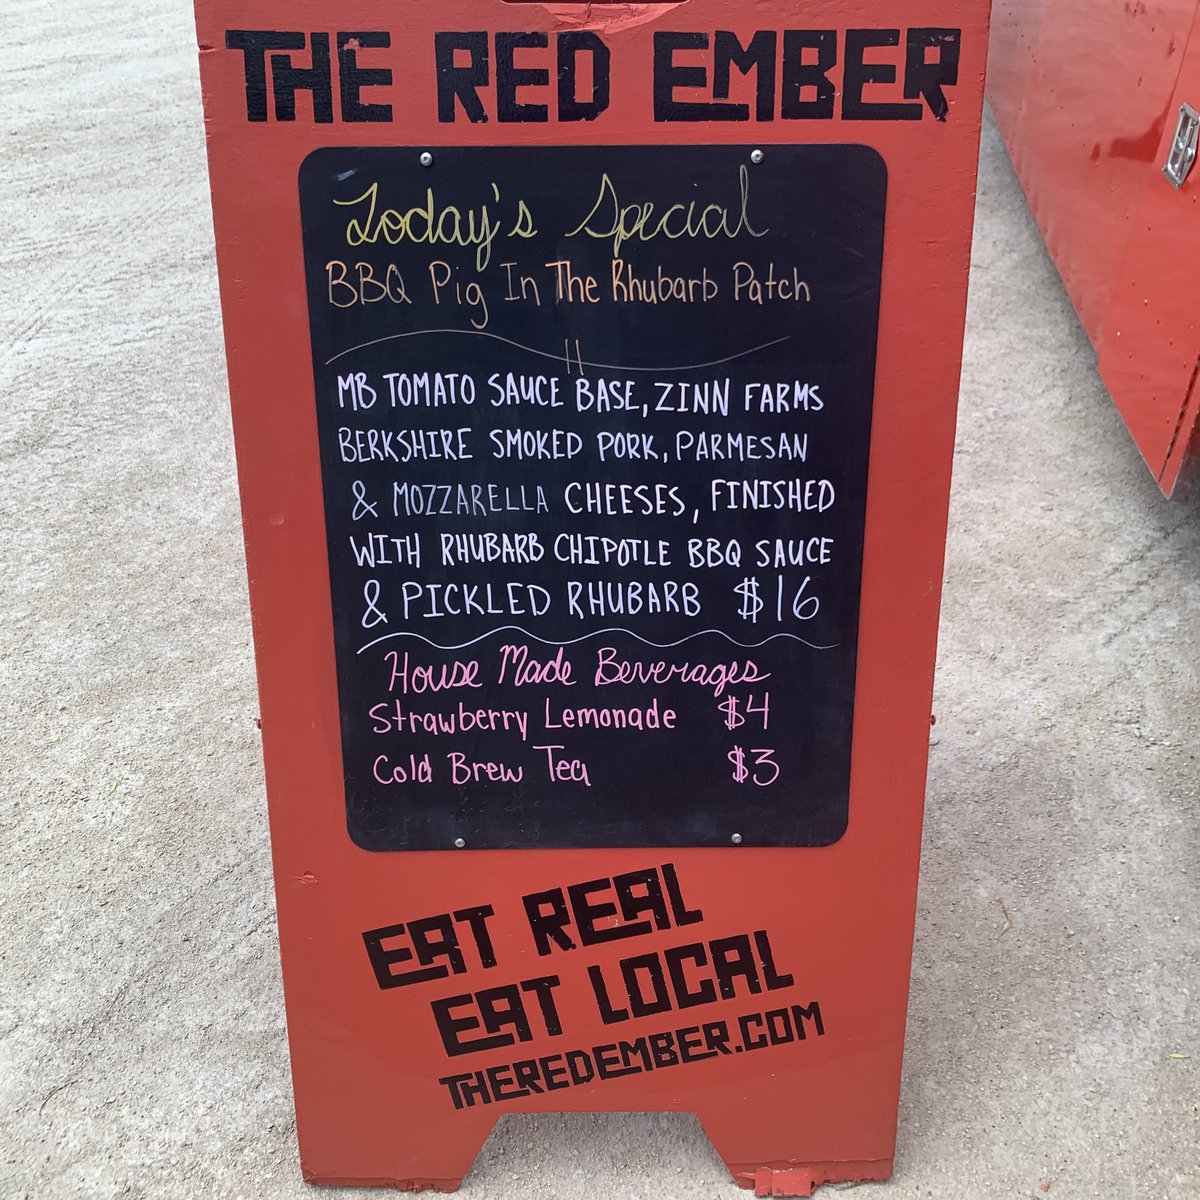 THE RED EMBER
Today's Special
BBQ Pig In The Rhubarb Patch
MB TOMATO SAUCE BASE, ZINN FARMS
BERKSHIRE SMOKED PORK, PARMESAN
& MOZZARELLA CHEESES, FINISHED
WITH RHUBARB CHIPOTLE BBQ SAUCE
& PICKLED RHUBARB $16
House Made Beverages
Strawberry Lemonade $4
Cold Brew Tea $3
EAT REAL
EAT LOCAL
THEREDEMBER.COM